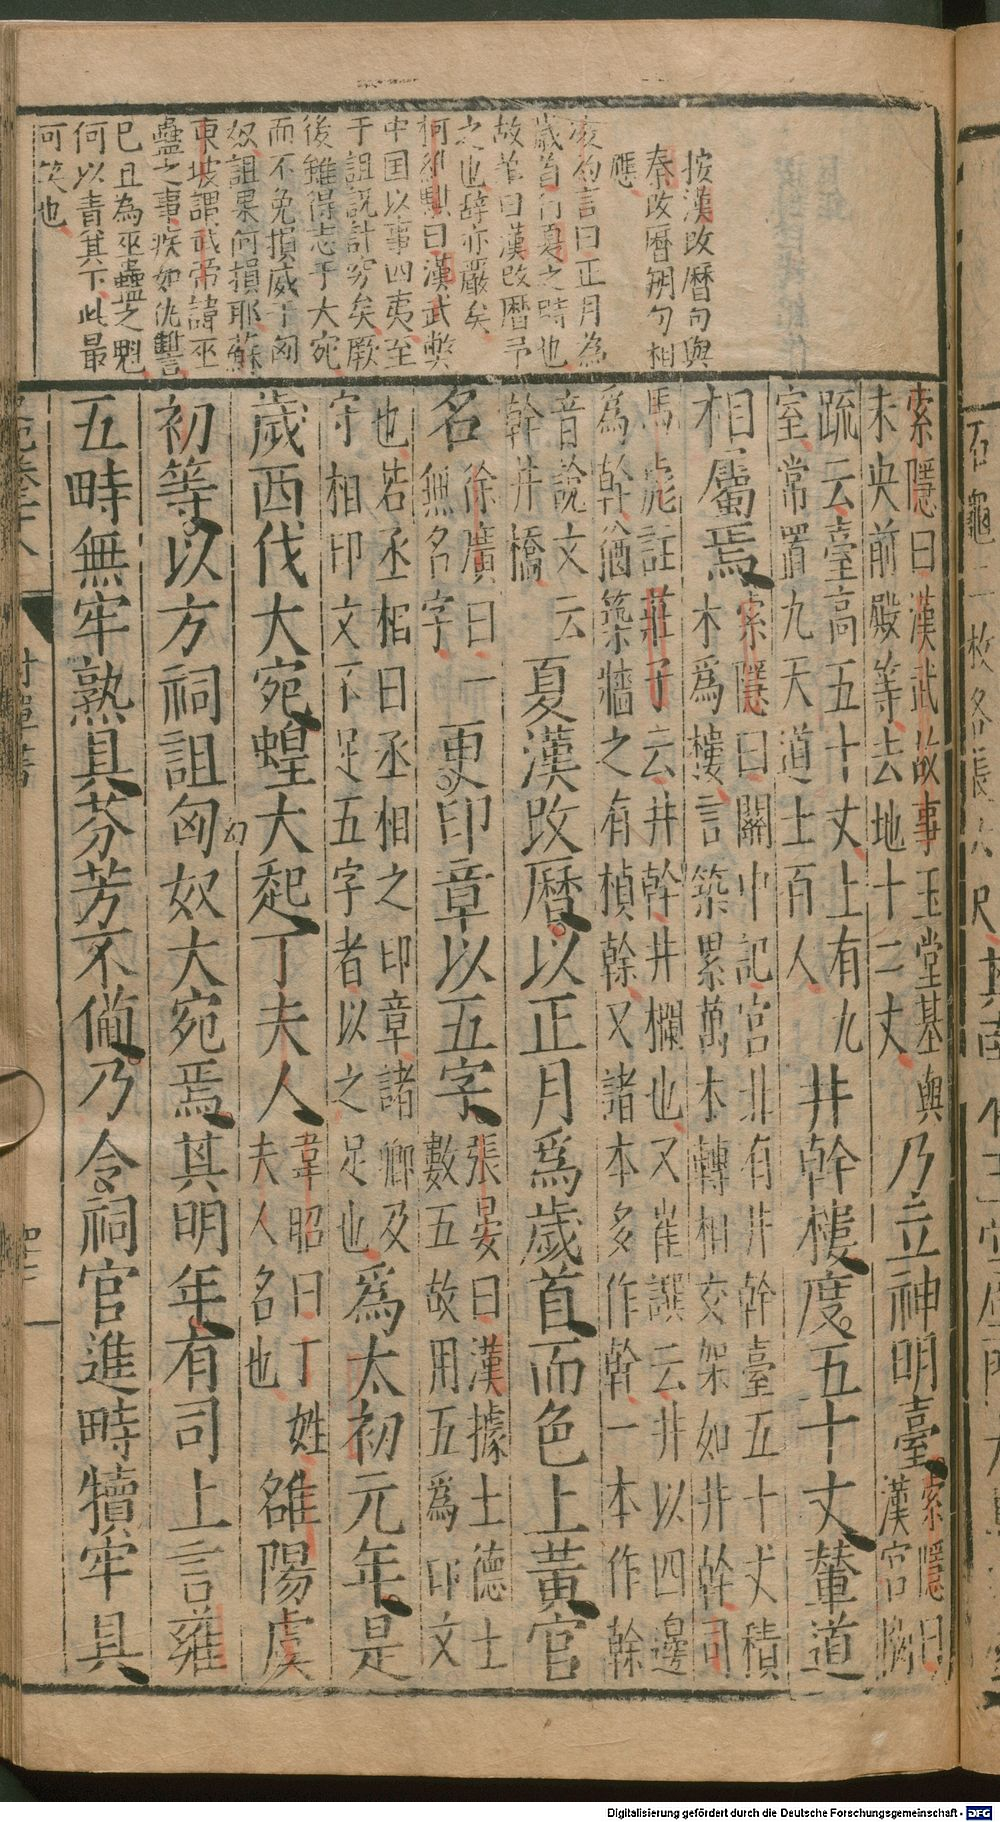 按漢改曆句與
秦改曆朔句相
應
凌約言曰正月為
歲首行夏之時也
故筆曰漢改曆予
之也辭亦嚴矣
柯維騏曰漢武弊
中国以事四夷至
于詛説計窮矣厥
後雖得志于大宛
而不免損威于匈
奴詛果何損耶蘇
東坡謂武帝諱巫
蠱之事疾如仇讐
已且為巫蠱之魁
何以責其下此最
可笑也
索隱曰漢武故事玉堂基與
未央前殿等去地十二丈
乃立神明臺
索隱曰
漢宮
疏云臺高五十丈上有九
室常置九天道士百人
井幹樓度五十丈輦道
相屬焉
索隱曰關中記宮北有井幹臺五十丈積
木為樓言築累萬木轉相交架如井幹司
馬彪註莊子云井幹井欄也又崔譔云井以四邊
為幹猶築牆之有楨幹又諸本多作幹一本作榦
音説文云
幹井橋
夏漢改曆以正月為歲首而色上黃官
名
徐廣曰一
無名字
更印章以五字
張晏曰漢據土德土
數五故用五為印文
也若丞相曰丞相之印章諸卿及
守相印文不足五字者以之足也
為太初元年是
歲西伐大宛蝗大起丁夫人
韋昭曰丁姓
夫人名也
雒陽虞
初等以方祠詛匈奴大宛焉其明年有司上言雍
五畤無牢熟具芬芳不備乃令祠官進畤犢牢具
幻
Digitalisierung gefördert durch die Deutsche Forschungsgemeinschaft - DFG